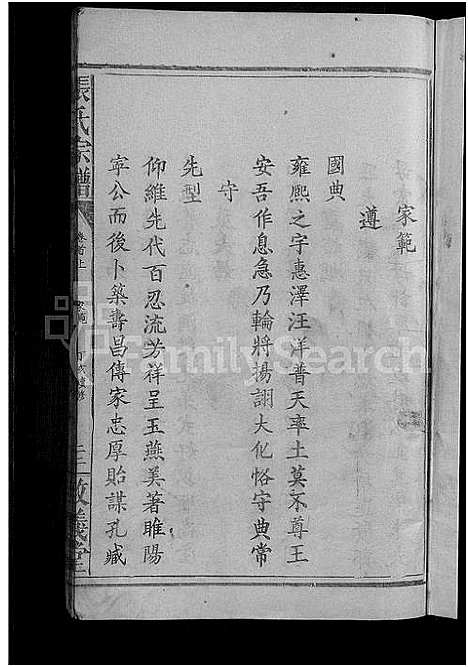 家範
遵
國典
雍熙之宇惠澤汪洋普天率土莫不尊王
安吾作息急乃輪將揚詡大化恪守典常
守
先型
仰維先代百忍流芳祥呈玉燕美著睢陽
寧公而後卜築壽昌傳家忠厚貽謀孔臧
張氏宗譜
卷首上
敦義堂
FamilySearch